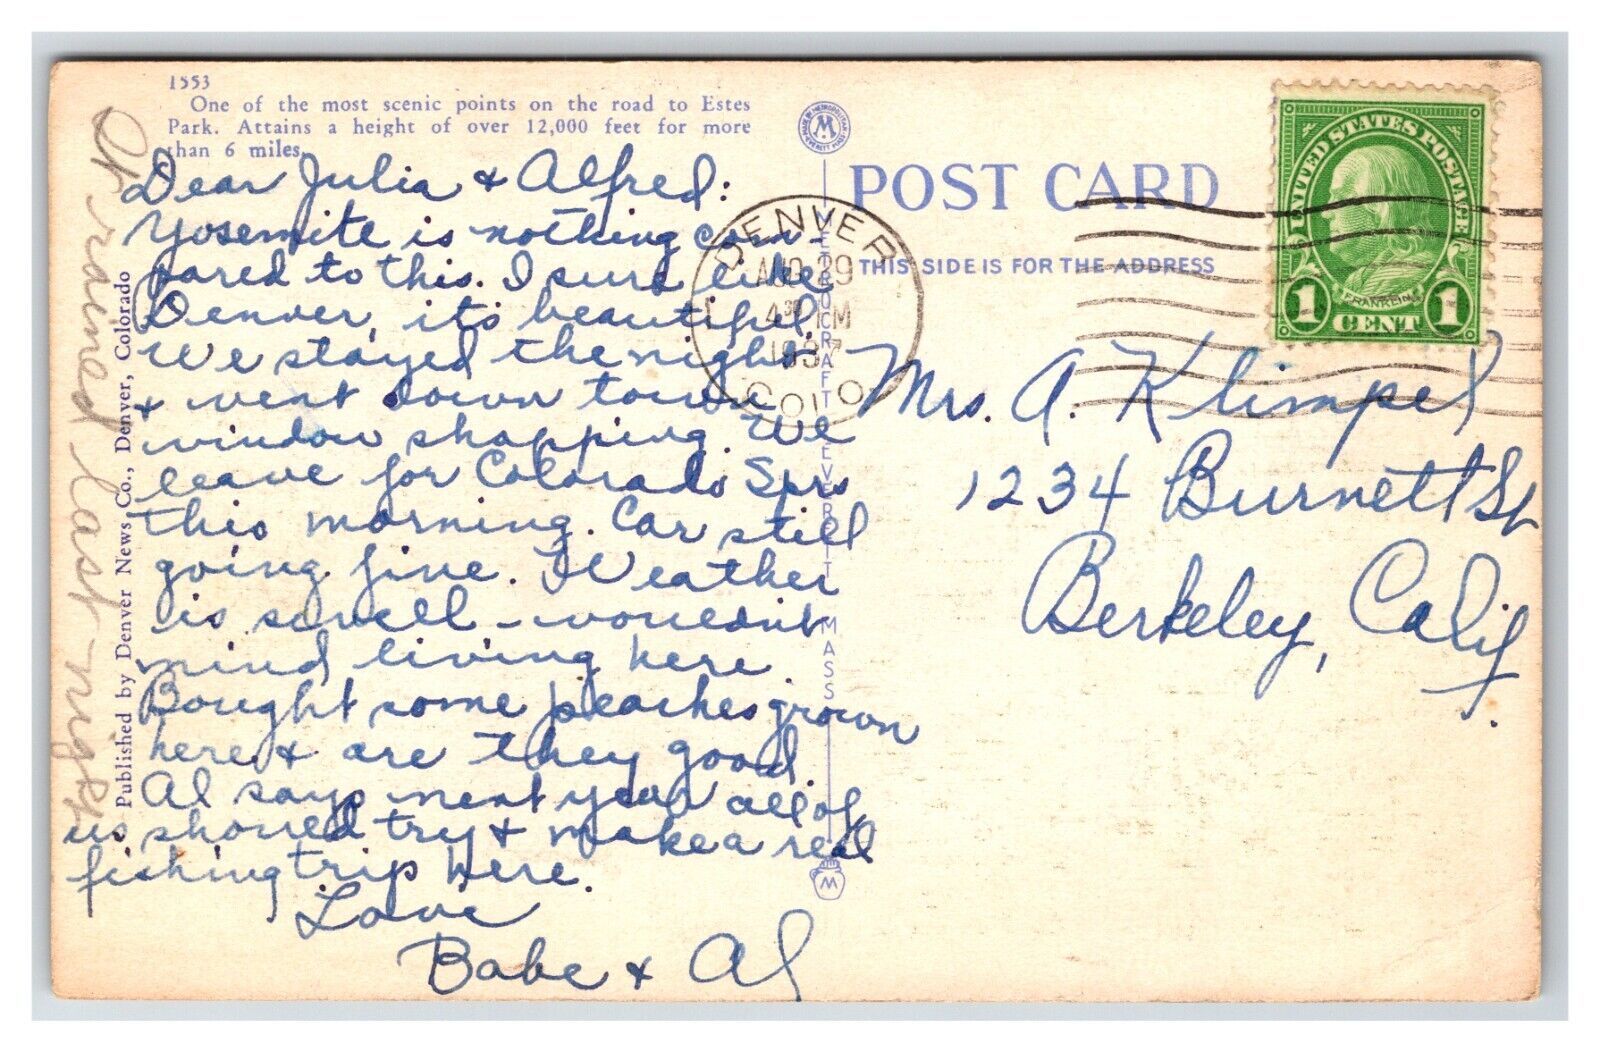 1553
One of the most scenic points on the road to Estes
Park. Attains a height of over 12,000 feet for more
than 6 miles.
Dear Julia & Alfred:
Yosemite is nothing com-
pared to this. I sure like
Denver, it's beautiful.
We stayed the night
& went down town
window shopping. We
leave for Colorado Sprs
this morning. Car still
going fine. Weather
is swell - wouldn't
mind living here.
Bought some peaches grown
here & are they good.
Al says next year all of
us should try & make a real
fishing trip here.
Love
Babe & Al
It rained last night
Published by Denver News Co., Denver, Colorado
MADE BY METROPOLITAN
M
EVERETT MASS
METROCRAFT EVERETT MASS
M
POST CARD
THIS SIDE IS FOR THE ADDRESS
DENVER
AUG 29
4 30 PM
1937
COLO
UNITED STATES POSTAGE
FRANKLIN
1 CENT 1
Mrs. A. Klimpel
1234 Burnett St
Berkeley, Calif.